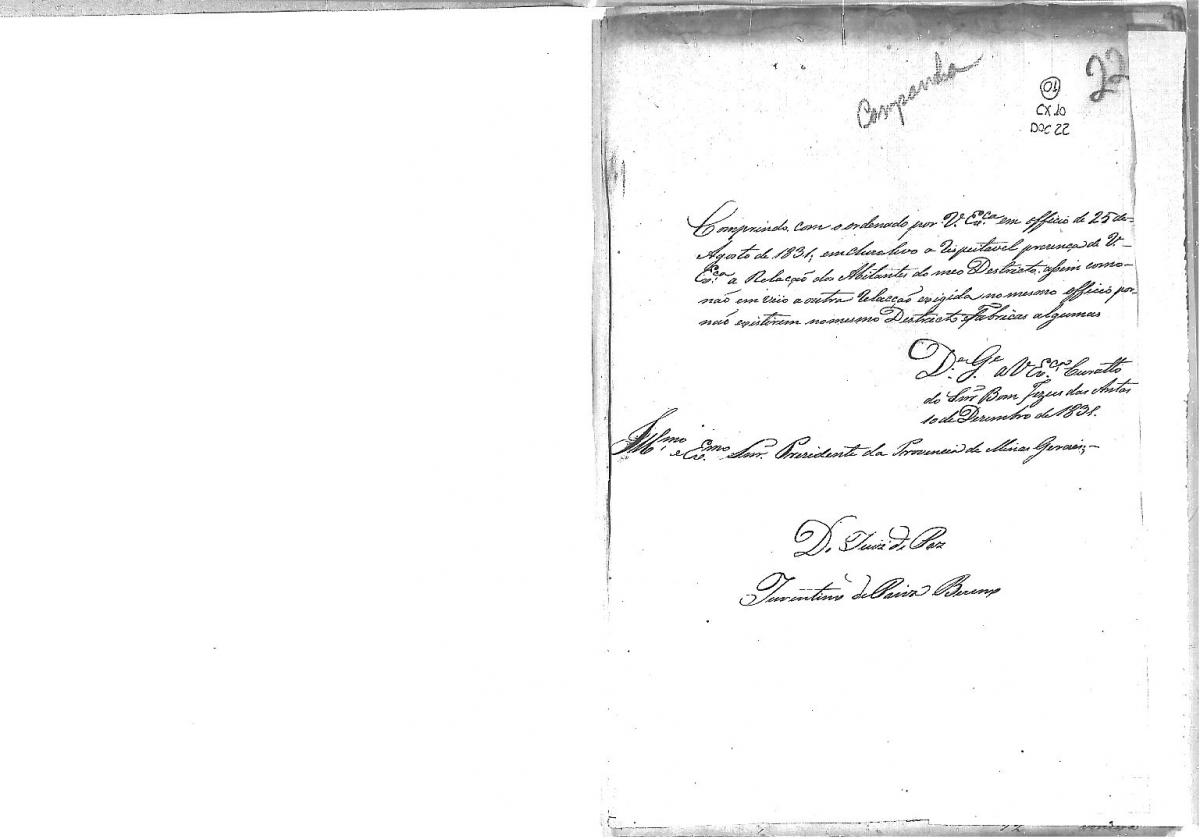 Campanha
22
01
CX 10
DOC 22
Comprindo com o ordenado por V. Ex.ca em officio de 25 de
Agosto de 1831, incluzo livo a respeitavel prezença de V.
Ex.ca a Relacção dos Abitantes do meo Destricto, assim como
não em veio a outra relacção exigida no mesmo officio por
não existirem no mesmo Destricto Fabricas algumas
D.s G.e a V Ex.ca Curatto
do Snr Bom Jezus das Antas
10 de Dezembro de 1831.
Ill.mo e Ex.mo Snr. Prezidente da Provencia de Minas Geraes,
Do Juiz de Paz
de Paiva Bueno